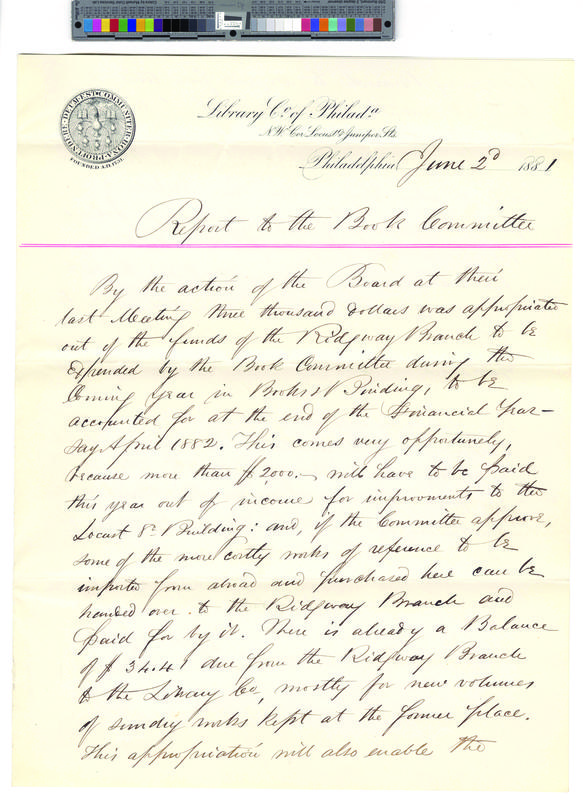 COMMUNITER BONA PROFUNDERE DEUM EST
FOUNDED A.D. 1731.
Library Co. of Philada.
N.W. Cor. Locust & Juniper Sts.
Philadelphia June 2d 1881
Report to the Book Committee
By the action of the Board at their
last Meeting three thousand dollars was appropriated
out of the funds of the Ridgway Branch to be
Expended by the Book Committee during the
Coming Year in Books & Binding, to be
accounted for at the end of the Financial Year—
say April 1882. This comes very opportunely,
because more than $2000.— will have to be paid
this year out of income for improvments to the
Locust St. Building: and, if the Committee approve,
some of the more costly works of reference to be
imported from abroad and purchased here can be
handed over to the Ridgway Branch and
paid for by it. There is already a Balance
of $34.41 due from the Ridgway Branch
to the Library Co, mostly for new volumes
of sundry works kept at the former place.
This appropriation will also enable the